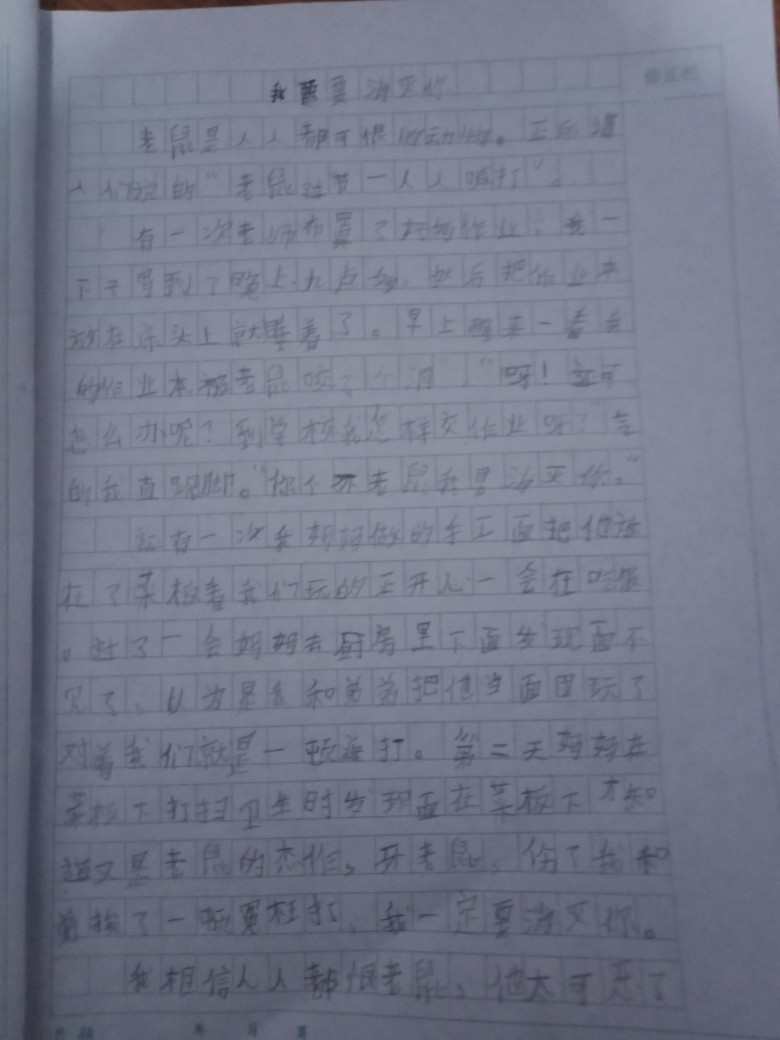 我要消灭你
老鼠是人人都可恨的动物。正所谓
人们说的“老鼠过节一人人喊打”。
有一次老师布置了好多作业,我一
下子写到了晚上九点多,然后把作业本
放在床头上就睡着了。早上醒来一看我
的作业本被老鼠咬了个洞,“呀!这可
怎么办呢?到学校我怎样交作业呀?”气
的我直跺脚。“你个坏老鼠我要消灭你。”
还有一次我妈妈做的手工面把他放
在了菜板看我们玩的正开心一会在吃饭
。过了一会妈妈去厨房里下面发现面不
见了,以为是我和弟弟把他当面团玩了
对着我们就是一顿打。第二天妈妈在
菜板下打扫卫生时发现面在菜板下才知
道又是老鼠的杰作,坏老鼠,你了我和
弟挨了一顿冤枉打,我一定要消灭你。
我相信人人都恨老鼠,他太可恶了
年 月 日